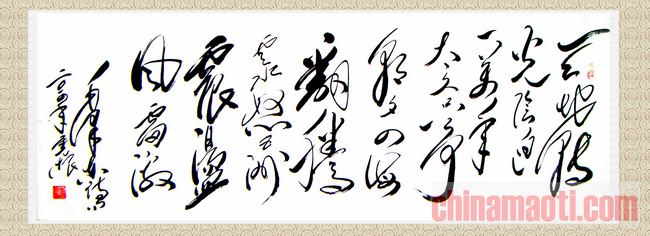 天地转
光陰迫
一万年
太久只争
朝夕四海
翻腾
雲水怒五洲
震盪
风雷激
毛泽东诗
chinamaoti.com